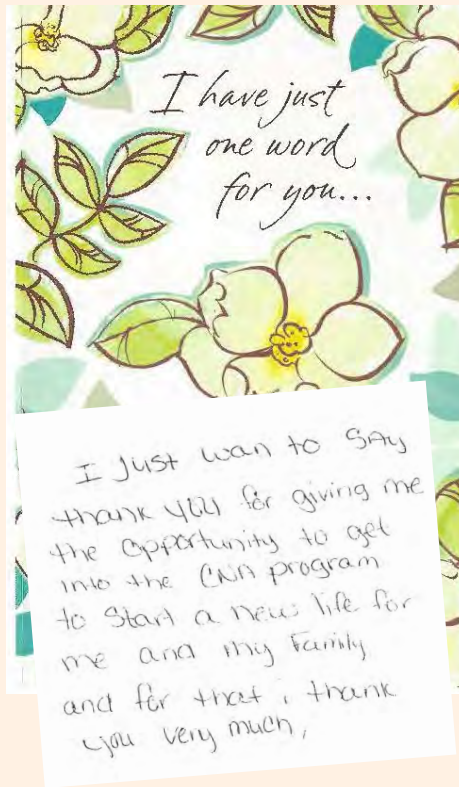 I have just
one word
for you...
I Just wan to SAy
thank YOU for giving me
the opportunity to get
into the CNA program
to Start a new life for
me and my Family
and for that i thank
you very much,